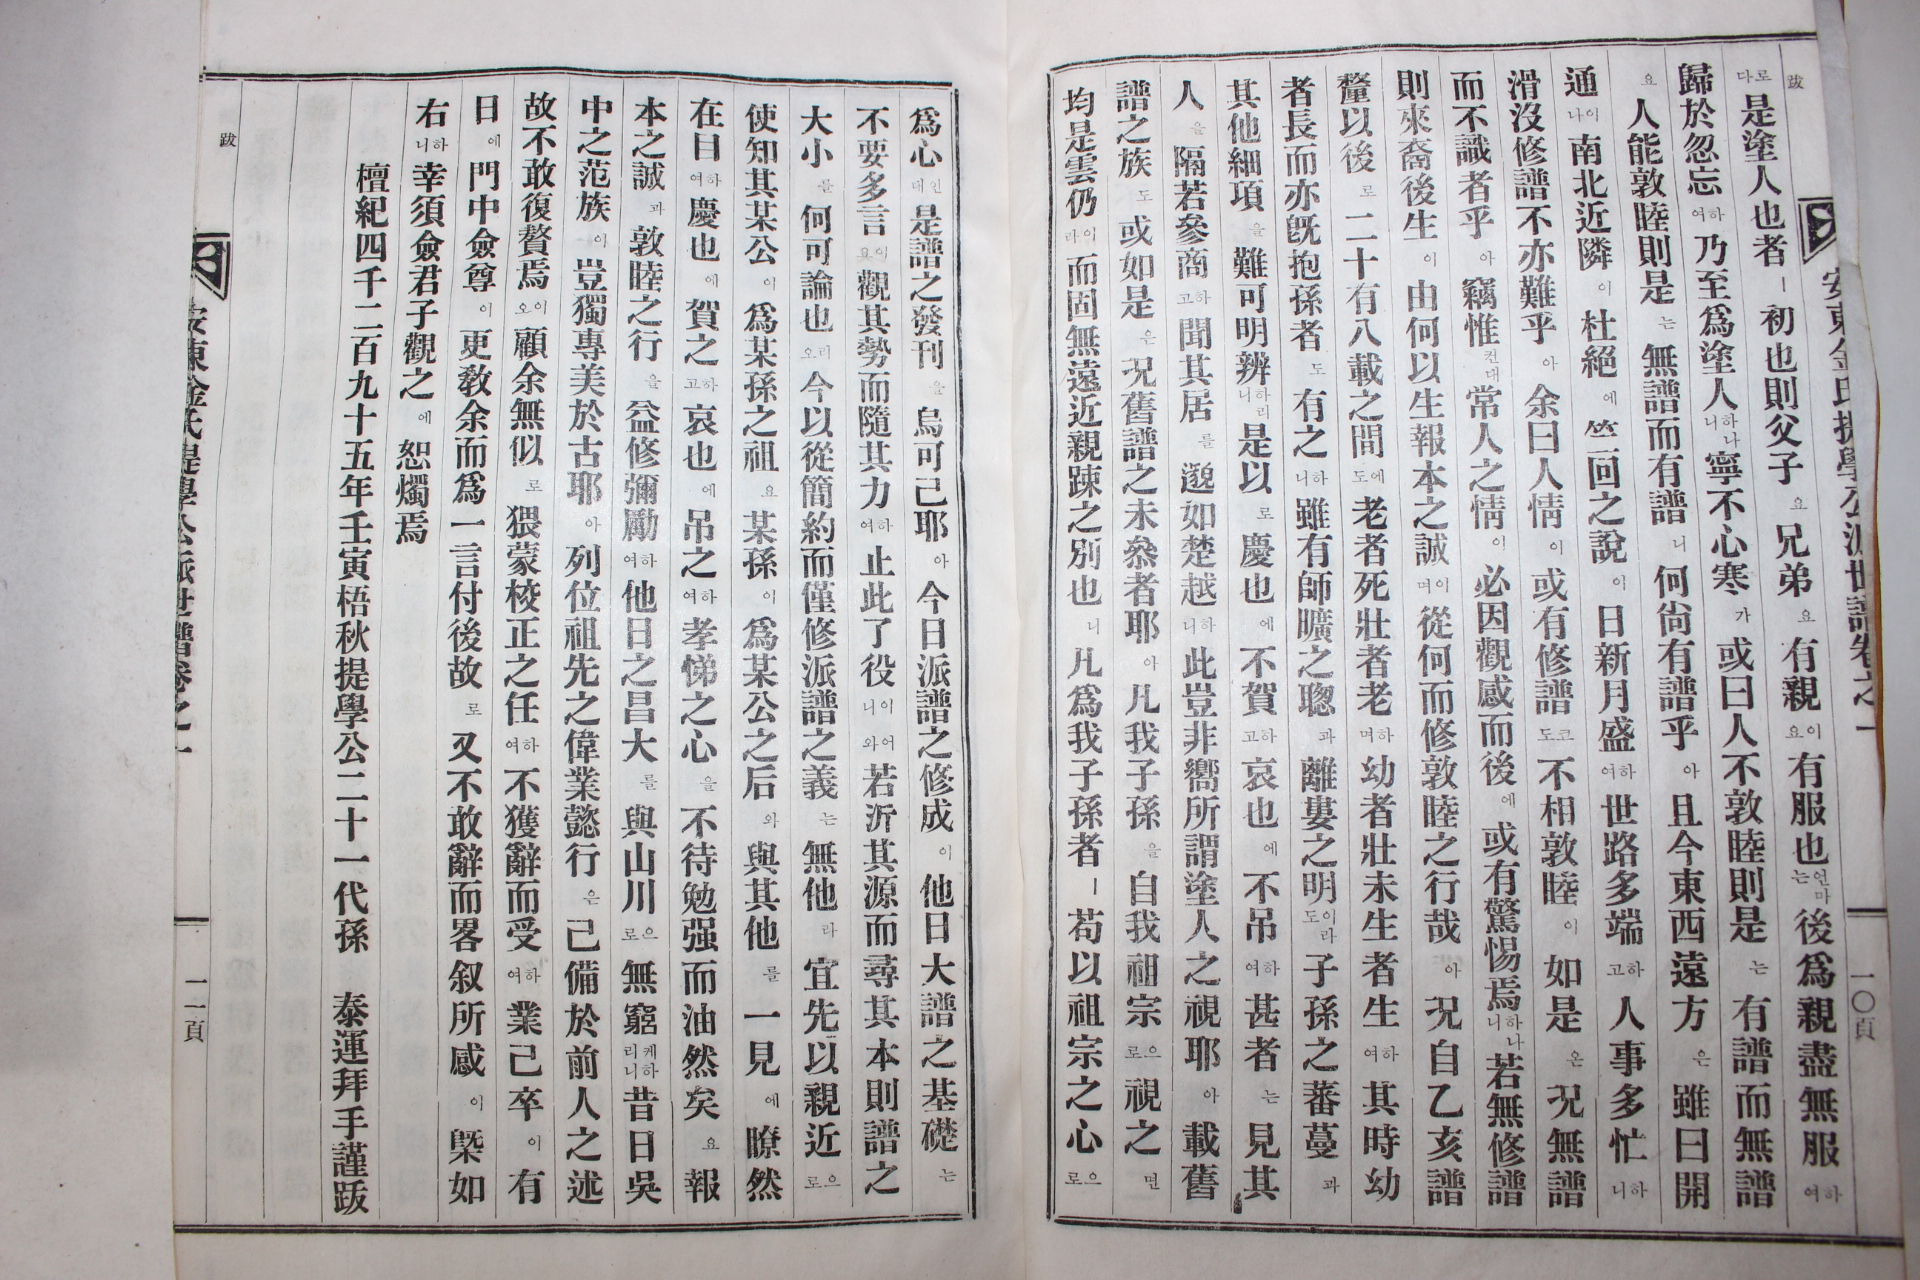 跋
安東金氏提學公派世譜卷之一
一〇頁
로다是塗人也者ㅣ初也則父子요兄弟요有親이요有服也언마는後爲親盡無服하여
歸於忽忘하여乃至爲塗人하나니寧不心寒가或曰人不敦睦則是는有譜而無譜
요人能敦睦則是는無譜而有譜니何尙有譜乎아且今東西遠方은雖曰開
通이나南北近隣이杜絕에竺回之說이日新月盛하여世路多端하고人事多忙하니
滑沒修譜不亦難乎아余曰人情이或有修譜코도不相敦睦이如是온況無譜
而不識者乎아竊惟컨대常人之情이必因觀感而後에或有驚惕焉하나니若無修譜
則來裔後生이由何以生報本之誠이며從何而修敦睦之行哉아況自乙亥譜
釐以後로二十有八載之間에도老者死壯者老하며幼者壯未生者生하여其時幼
者長而亦旣抱孫者도有之하니雖有師曠之聰과離婁之明이라도子孫之蕃蔓과
其他細項을難可明辨하리니是以로慶也에不賀하고哀也에不吊하여甚者는見其
人을隔若參商하고聞其居를邈如楚越하니此豈非嚮所謂塗人之視耶아載舊
譜之族도或如是은況舊譜之未叅者耶아凡我子孫을自我祖宗으로視之면
均是雲仍이라而固無遠近親踈之別也니凡爲我子孫者ㅣ苟以祖宗之心으로
爲心인대是譜之發刊을烏可已耶아今日派譜之修成이他日大譜之基礎는
不要多言이요觀其勢而隨其力하여止此了役이니와어若泝其源而尋其本則譜之
大小를何可論也리오今以從簡約而僅修派譜之義는無他라宜先以親近으로
使知其某公이爲某孫之祖요某孫이爲某公之后와與其他를一見에瞭然
在目하여慶也에賀之하고哀也에吊之하여孝悌之心을不待勉强而油然矣요報
本之誠과敦睦之行을益修彌勵하여他日之昌大를與山川으로無窮케하리니昔日吳
中之范族이豈獨專美於古耶아列位祖先之偉業懿行은已備於前人之述
故不敢復贅焉이오顧余無似로猥蒙校正之任하여不獲辭而受하여業已卒이有
日에門中僉尊이更敎余而爲一言付後故로又不敢辭而畧叙所感이槩如
右하니幸須僉君子觀之에恕燭焉
檀紀四千二百九十五年壬寅梧秋提學公二十一代孫 泰運拜手謹跋
跋
安東金氏提學公派世譜卷之一
一一頁